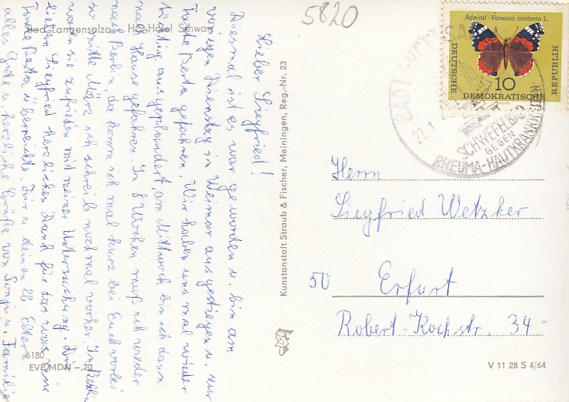 5820
Bad Langensalza HO-Hotel Schwan
Lieber Siegfried!
Diesmal ist es wahr geworden u. bin am
vorigen Dienstag in Weimar ausgestiegen u. zur
Tante Berta gefahren. Wir haben uns mal wieder
richtig ausgeplaudert, am Mittwoch bin ich dann
nach Haus gefahren. In 8 Wochen muß ich wieder
nach Berlin, da komm ich mal kurz bei Euch vorbei
so Mitte März, ich schreib noch mal vorher. In Berlin
waren sie zufrieden mit meiner Untersuchung. Dir
lieber Siegfried herzlichen Dank für das
Tante Berta überreichte. Dir u. deinen lb. Eltern
alles Gute u. herzliche Grüße von u. Familie
6180
EVP MDN -,20
Kunstanstalt Straub & Fischer, Meiningen, Reg.-Nr. 23
Admiral - Vanessa atalanta L.
DEUTSCHE
DEMOKRATISCHE
REPUBLIK
10
BAD LANGENSALZA
22.1.
SCHWEFELBAD
GEGEN
RHEUMA-HAUTKRANKHEITEN
Herrn
Siegfried Wetzker
50 Erfurt
Robert-Koch str. 34
V 11 28 S 4/64